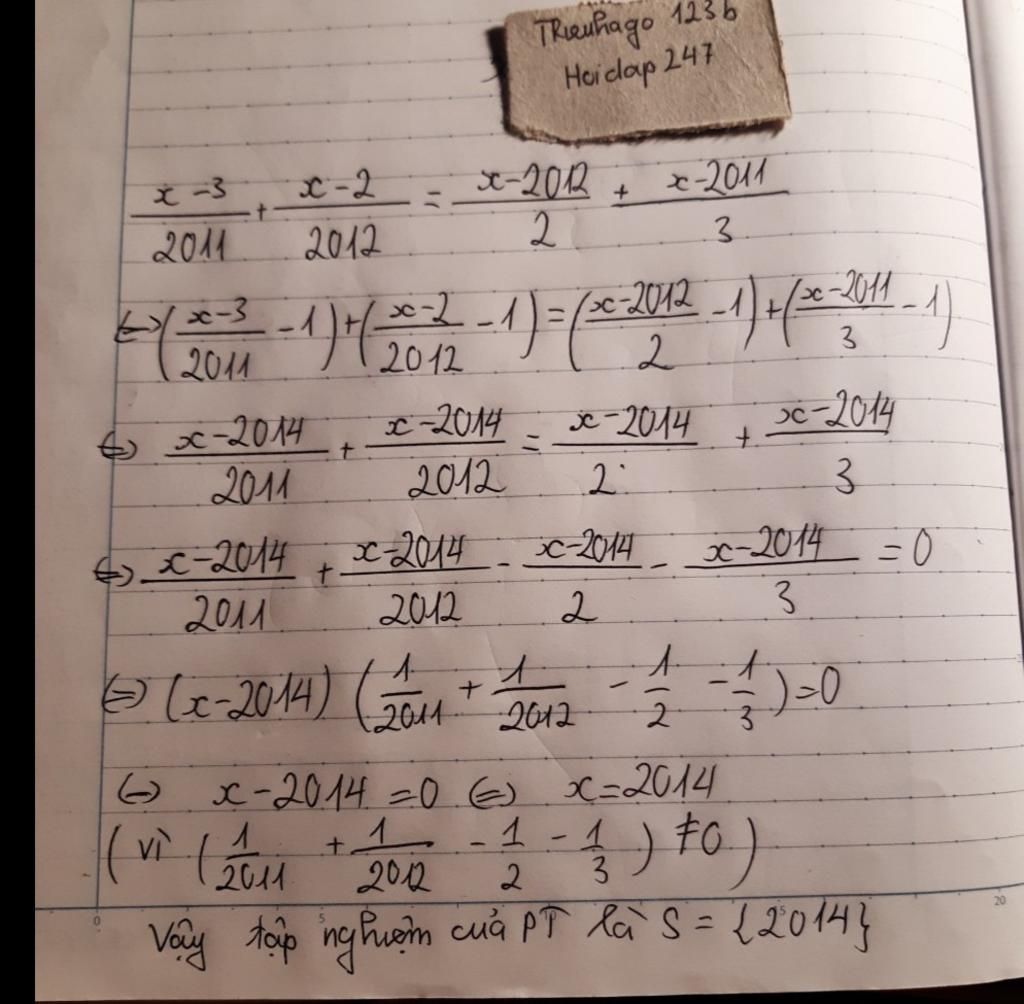 Trieuhago 123b
Hoidap 247
x-3/2011 + x-2/2012 = x-2012/2 + x-2011/3
⇔ (x-3/2011 - 1) + (x-2/2012 - 1) = (x-2012/2 - 1) + (x-2011/3 - 1)
⇔ x-2014/2011 + x-2014/2012 = x-2014/2 + x-2014/3
⇔ x-2014/2011 + x-2014/2012 - x-2014/2 - x-2014/3 = 0
⇔ (x-2014) (1/2011 + 1/2012 - 1/2 - 1/3) = 0
⇔ x-2014 = 0 ⇔ x = 2014
(vì (1/2011 + 1/2012 - 1/2 - 1/3) ≠ 0)
0 5 5 20
Vậy tập nghiệm của PT là S = {2014}